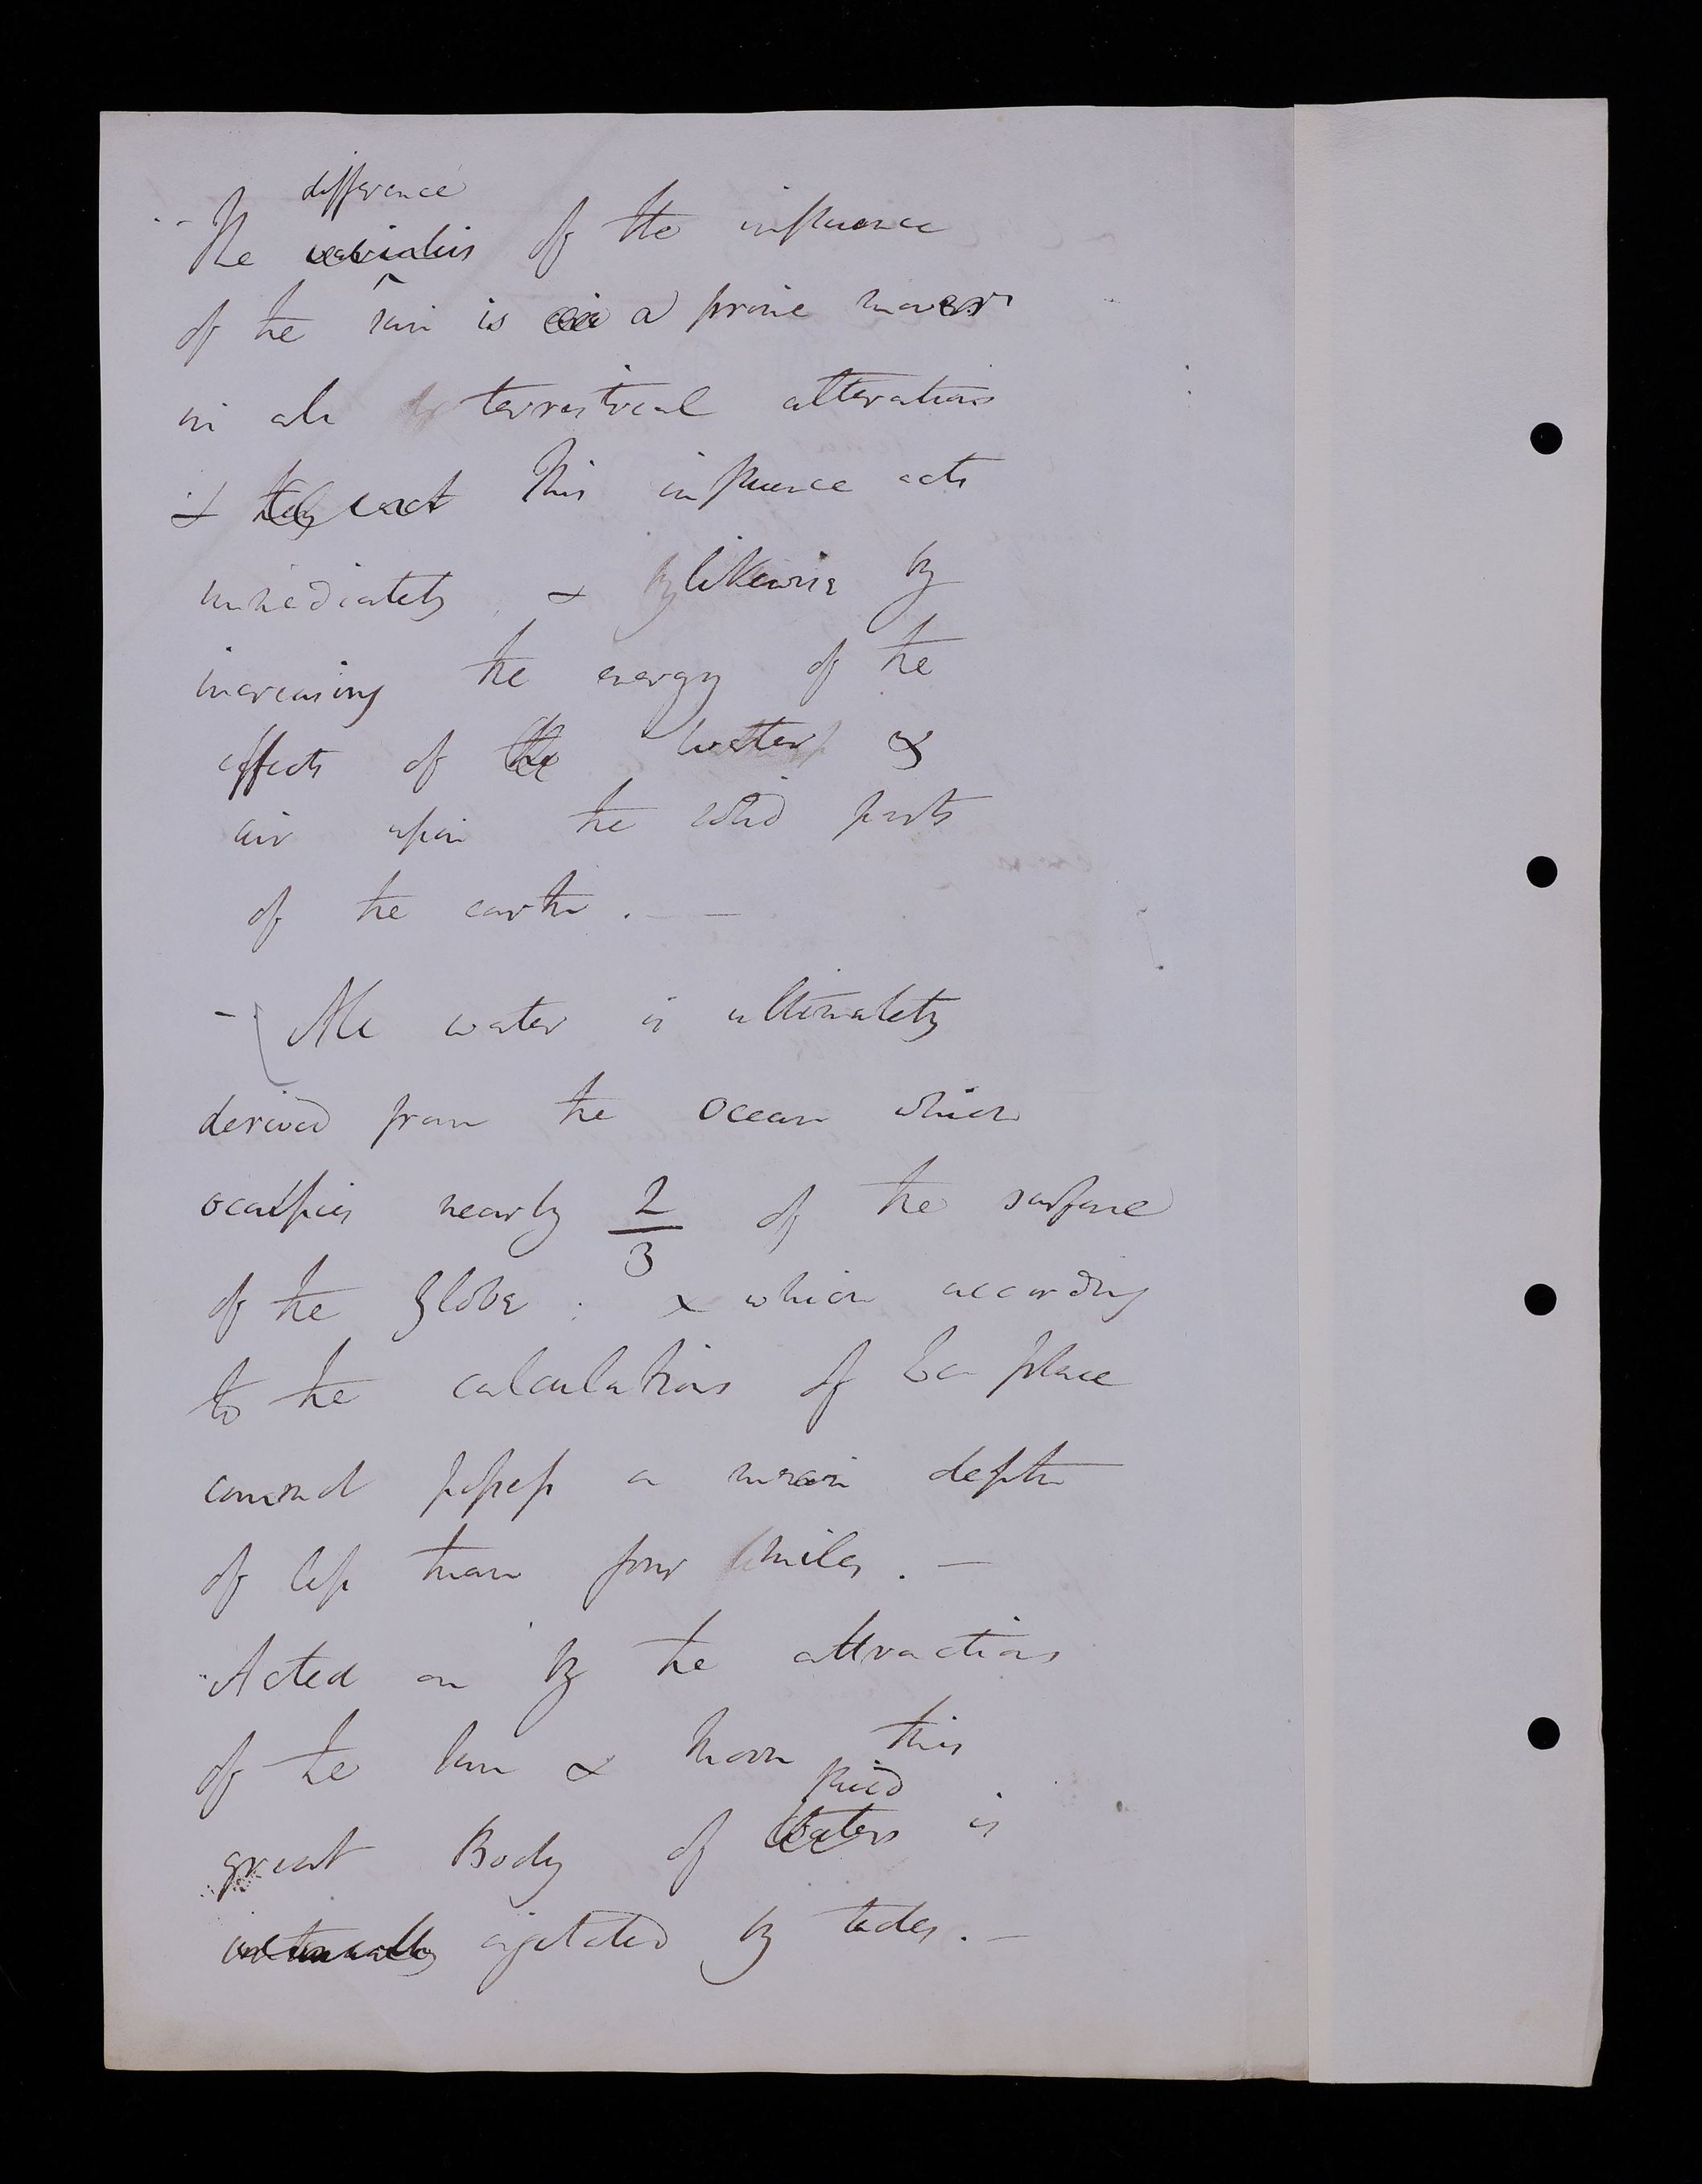 difference
- The variation of the influence
of the sun is a prime mover
in all terrestrial alterations
& they act This influence acts
immediately & by likewise by
increasing the energy of the
effects of the water &
air upon the solid parts
of the earth. -
- All water is ultimately
derived from the ocean which
occupies nearly 2/3 of the surface
of the Globe : & which according
to the calculations of La place
cannot possess a mean depth
of less than four miles. -
Acted on by the attractions
of the sun & moon this
fluid
great Body of Waters is
agitated by tides. -